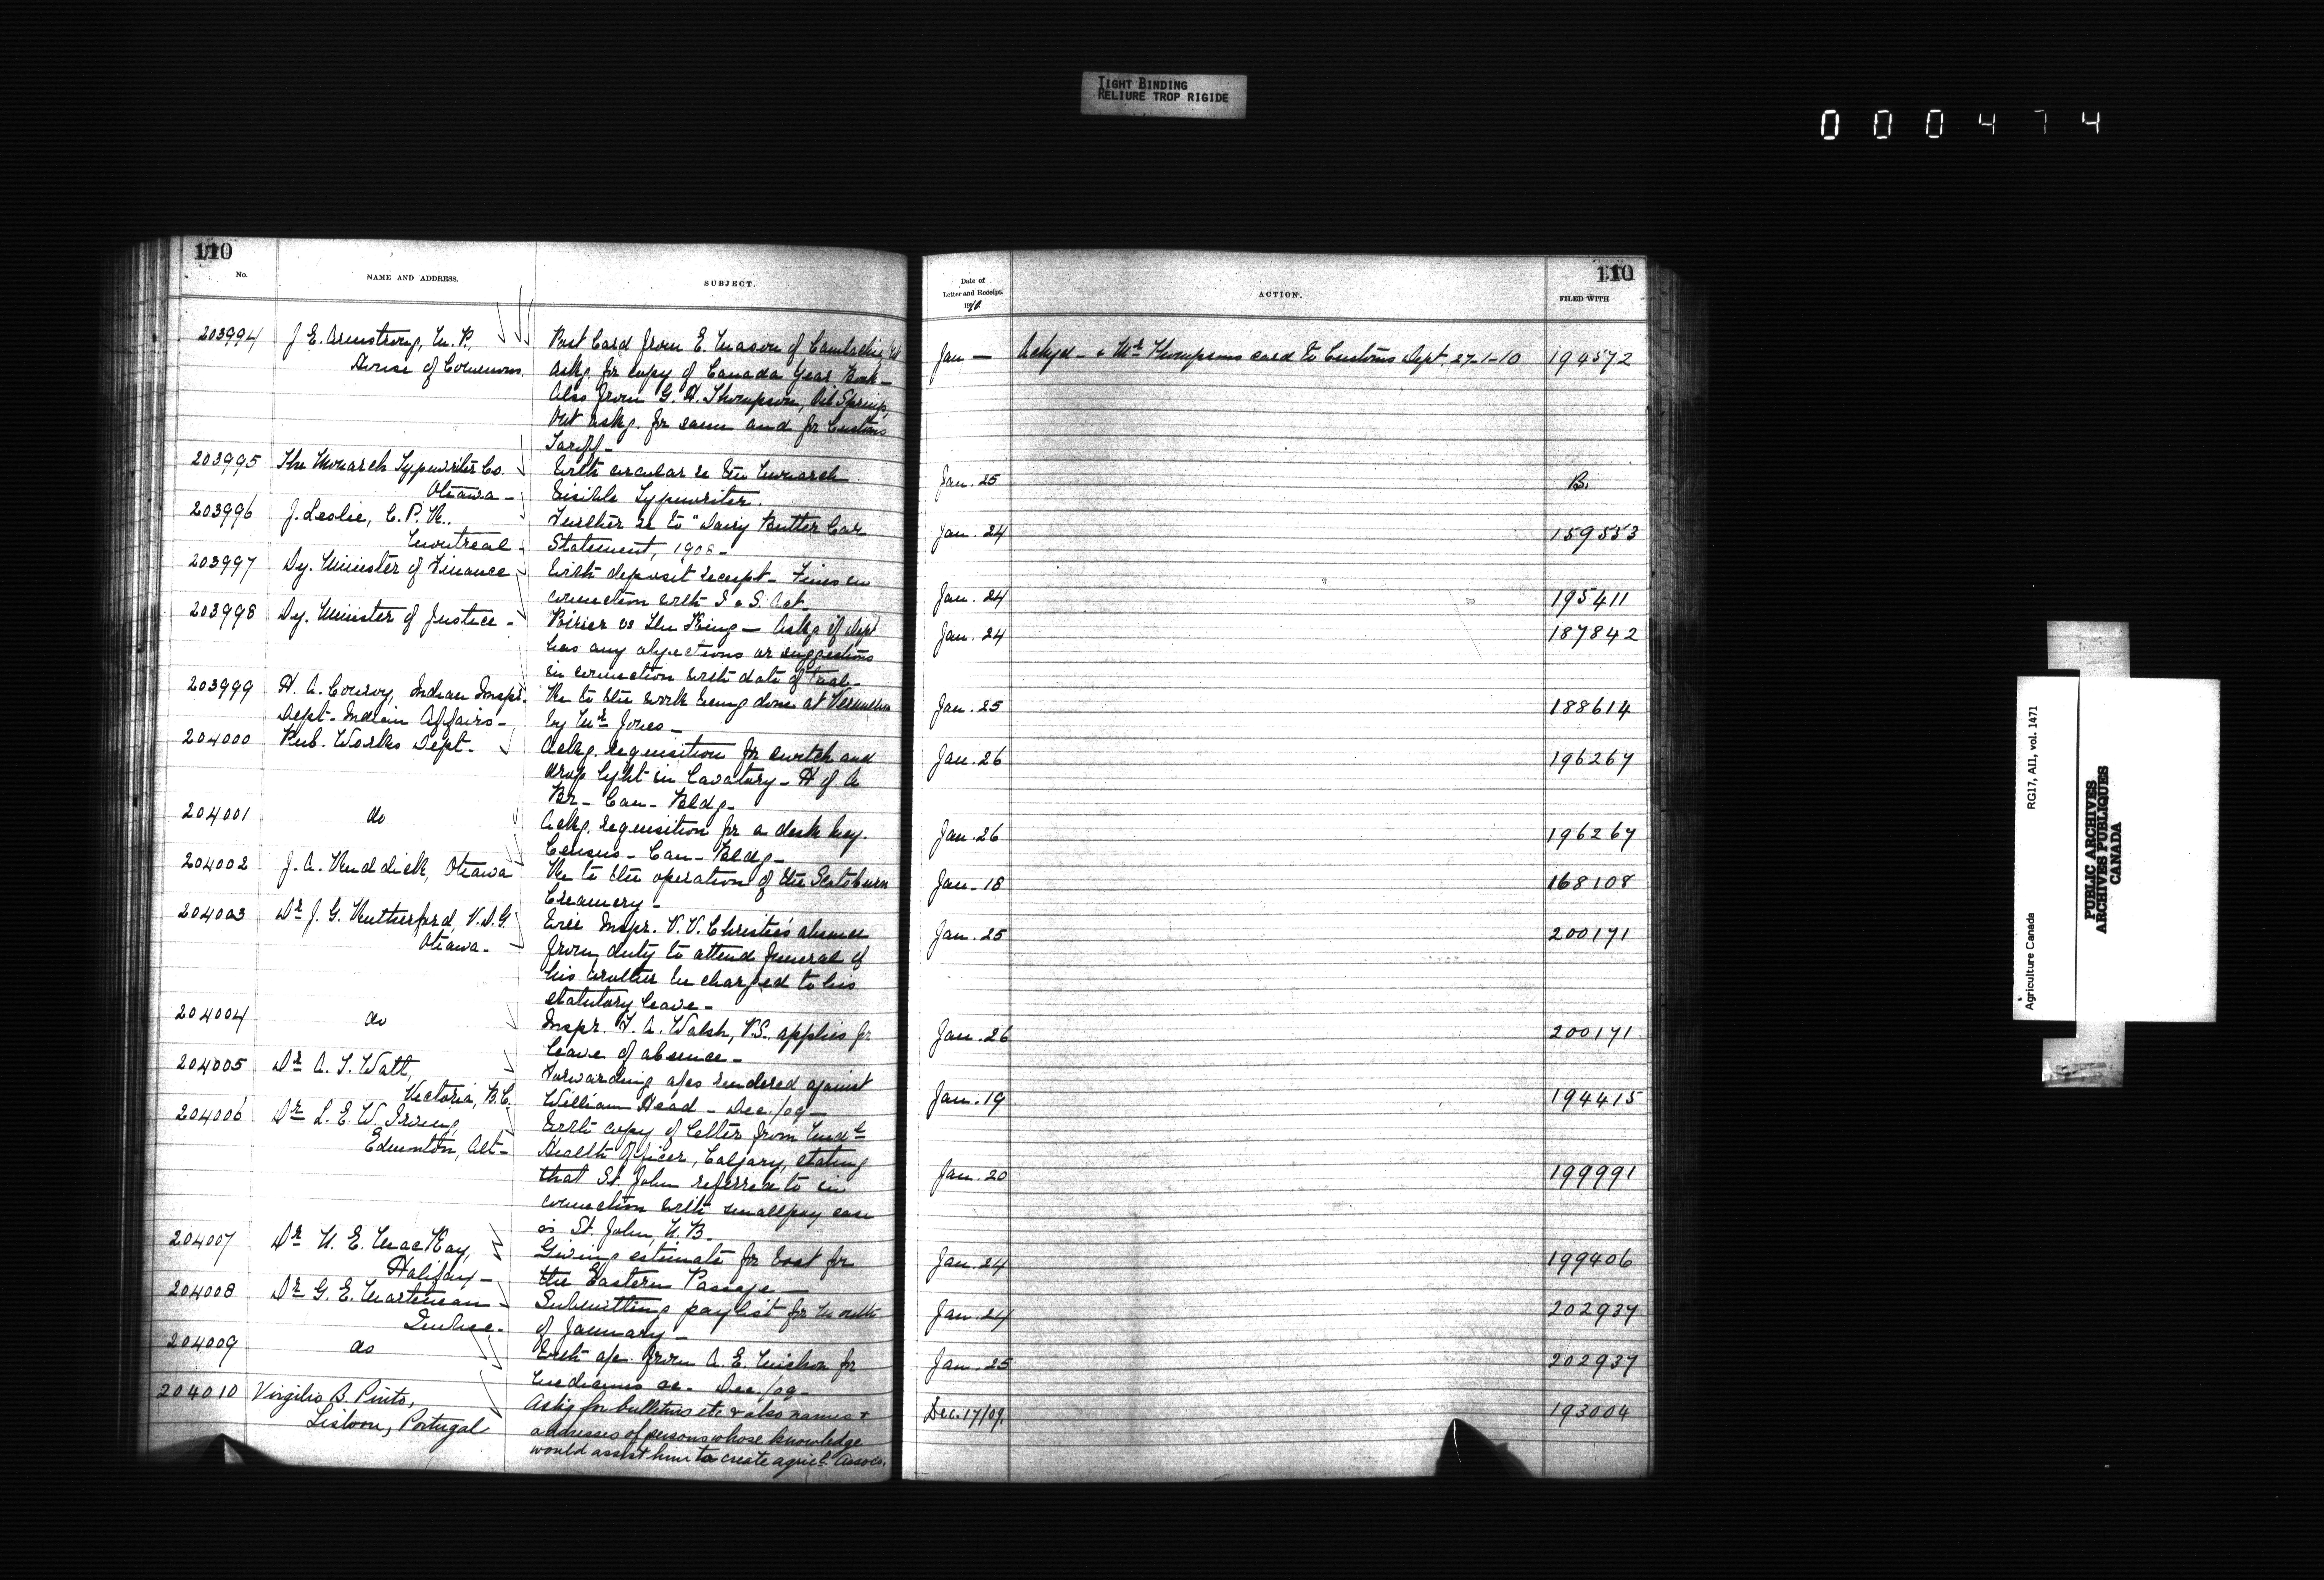 TIGHT BINDING
RELIURE TROP RIGIDE
000474
110
No.
NAME AND ADDRESS.
SUBJECT.
203994 J. E. Armstrong, M. P., Post Card from E. Mason of Camlachie,
House of Commons. Askg. for copy of Canada Year Book -
Also from G. H. Thompson, Oil Springs,
Ont askg. for same and for Customs
Tariff -
203995 The Monarch Typewriter Co. With circular re the Monarch
Ottawa - Visible Typewriter.
203996 J. Leslie, C. P. R., Further re to "Dairy Butter Car
Montreal - Statement, 190
203997 Dy. Minister of Finance With deposit receipt - Fines in
connection with I & S. Act.
203998 Dy. Minister of Justice - Poirier vs The King - Askg if Dept
has any objections or suggestions
in connection with date of trial -
203999 H. A. Conroy, Indian Inspr. Re to the work being done at Vermilion
Dept. Indian Affairs - by Mr Jones -
204000 Pub. Works Dept. Ackg. requisition for switch and
drop light in Lavatory - H of A
Br - Can - Bldg -
204001 do Ackg. requisition for a desk key.
Census - Can - Bldg -
204002 J. A. Ruddick, Ottawa Re to the operation of the Scotsburn
Creamery -
204003 Dr J. G. Rutherford, V. D. G. Will Inspr. V. V. Christie's absence
Ottawa - from duty to attend funeral of
his brother be charged to his
statutory leave -
204004 do Inspr. T. A. Walsh, V.S. applies for
leave of absence -
204005 Dr A. T. Watt, Forwarding a/cs rendered against
Victoria, B.C. William Head - Dec./09 -
204006 Dr L. E. W. Irving, With copy of letter from Medl
Edmonton, Alt - Health Officer, Calgary, stating
that St. John referred to in
connection with smallpox case
is St. John, N. B.
204007 Dr N. E. MacKay, Giving estimate for boat for
Halifax - the Eastern Passage -
204008 Dr G. E. Martineau Submitting paylist for month
Quebec - of January -
204009 do With a/c from A. E. for
Medicines &c. Dec./09 -
204010 Virgilio B. Pinto, Askg for bulletins etc & also names &
Lisbon, Portugal addresses of persons whose knowledge
would assist him to create agricl. Assocs.
110
Date of
Letter and Receipt.
1910
ACTION.
FILED WITH
Jan - Ackgd - & Mr Thompsons card to Customs Dept. 27-1-10 194572
Jan. 25 B.
Jan. 24 159553
Jan. 24 195411
Jan. 24 187842
Jan. 25 188614
Jan. 26 196267
Jan. 26 196267
Jan. 18 168108
Jan. 25 200171
Jan. 26 200171
Jan. 19 194415
Jan. 20 199991
Jan. 24 199406
Jan. 24 202937
Jan. 25 202937
Dec. 17/09. 193004
Agriculture Canada RG17, AII, vol. 1471
PUBLIC ARCHIVES
ARCHIVES PUBLIQUES
CANADA